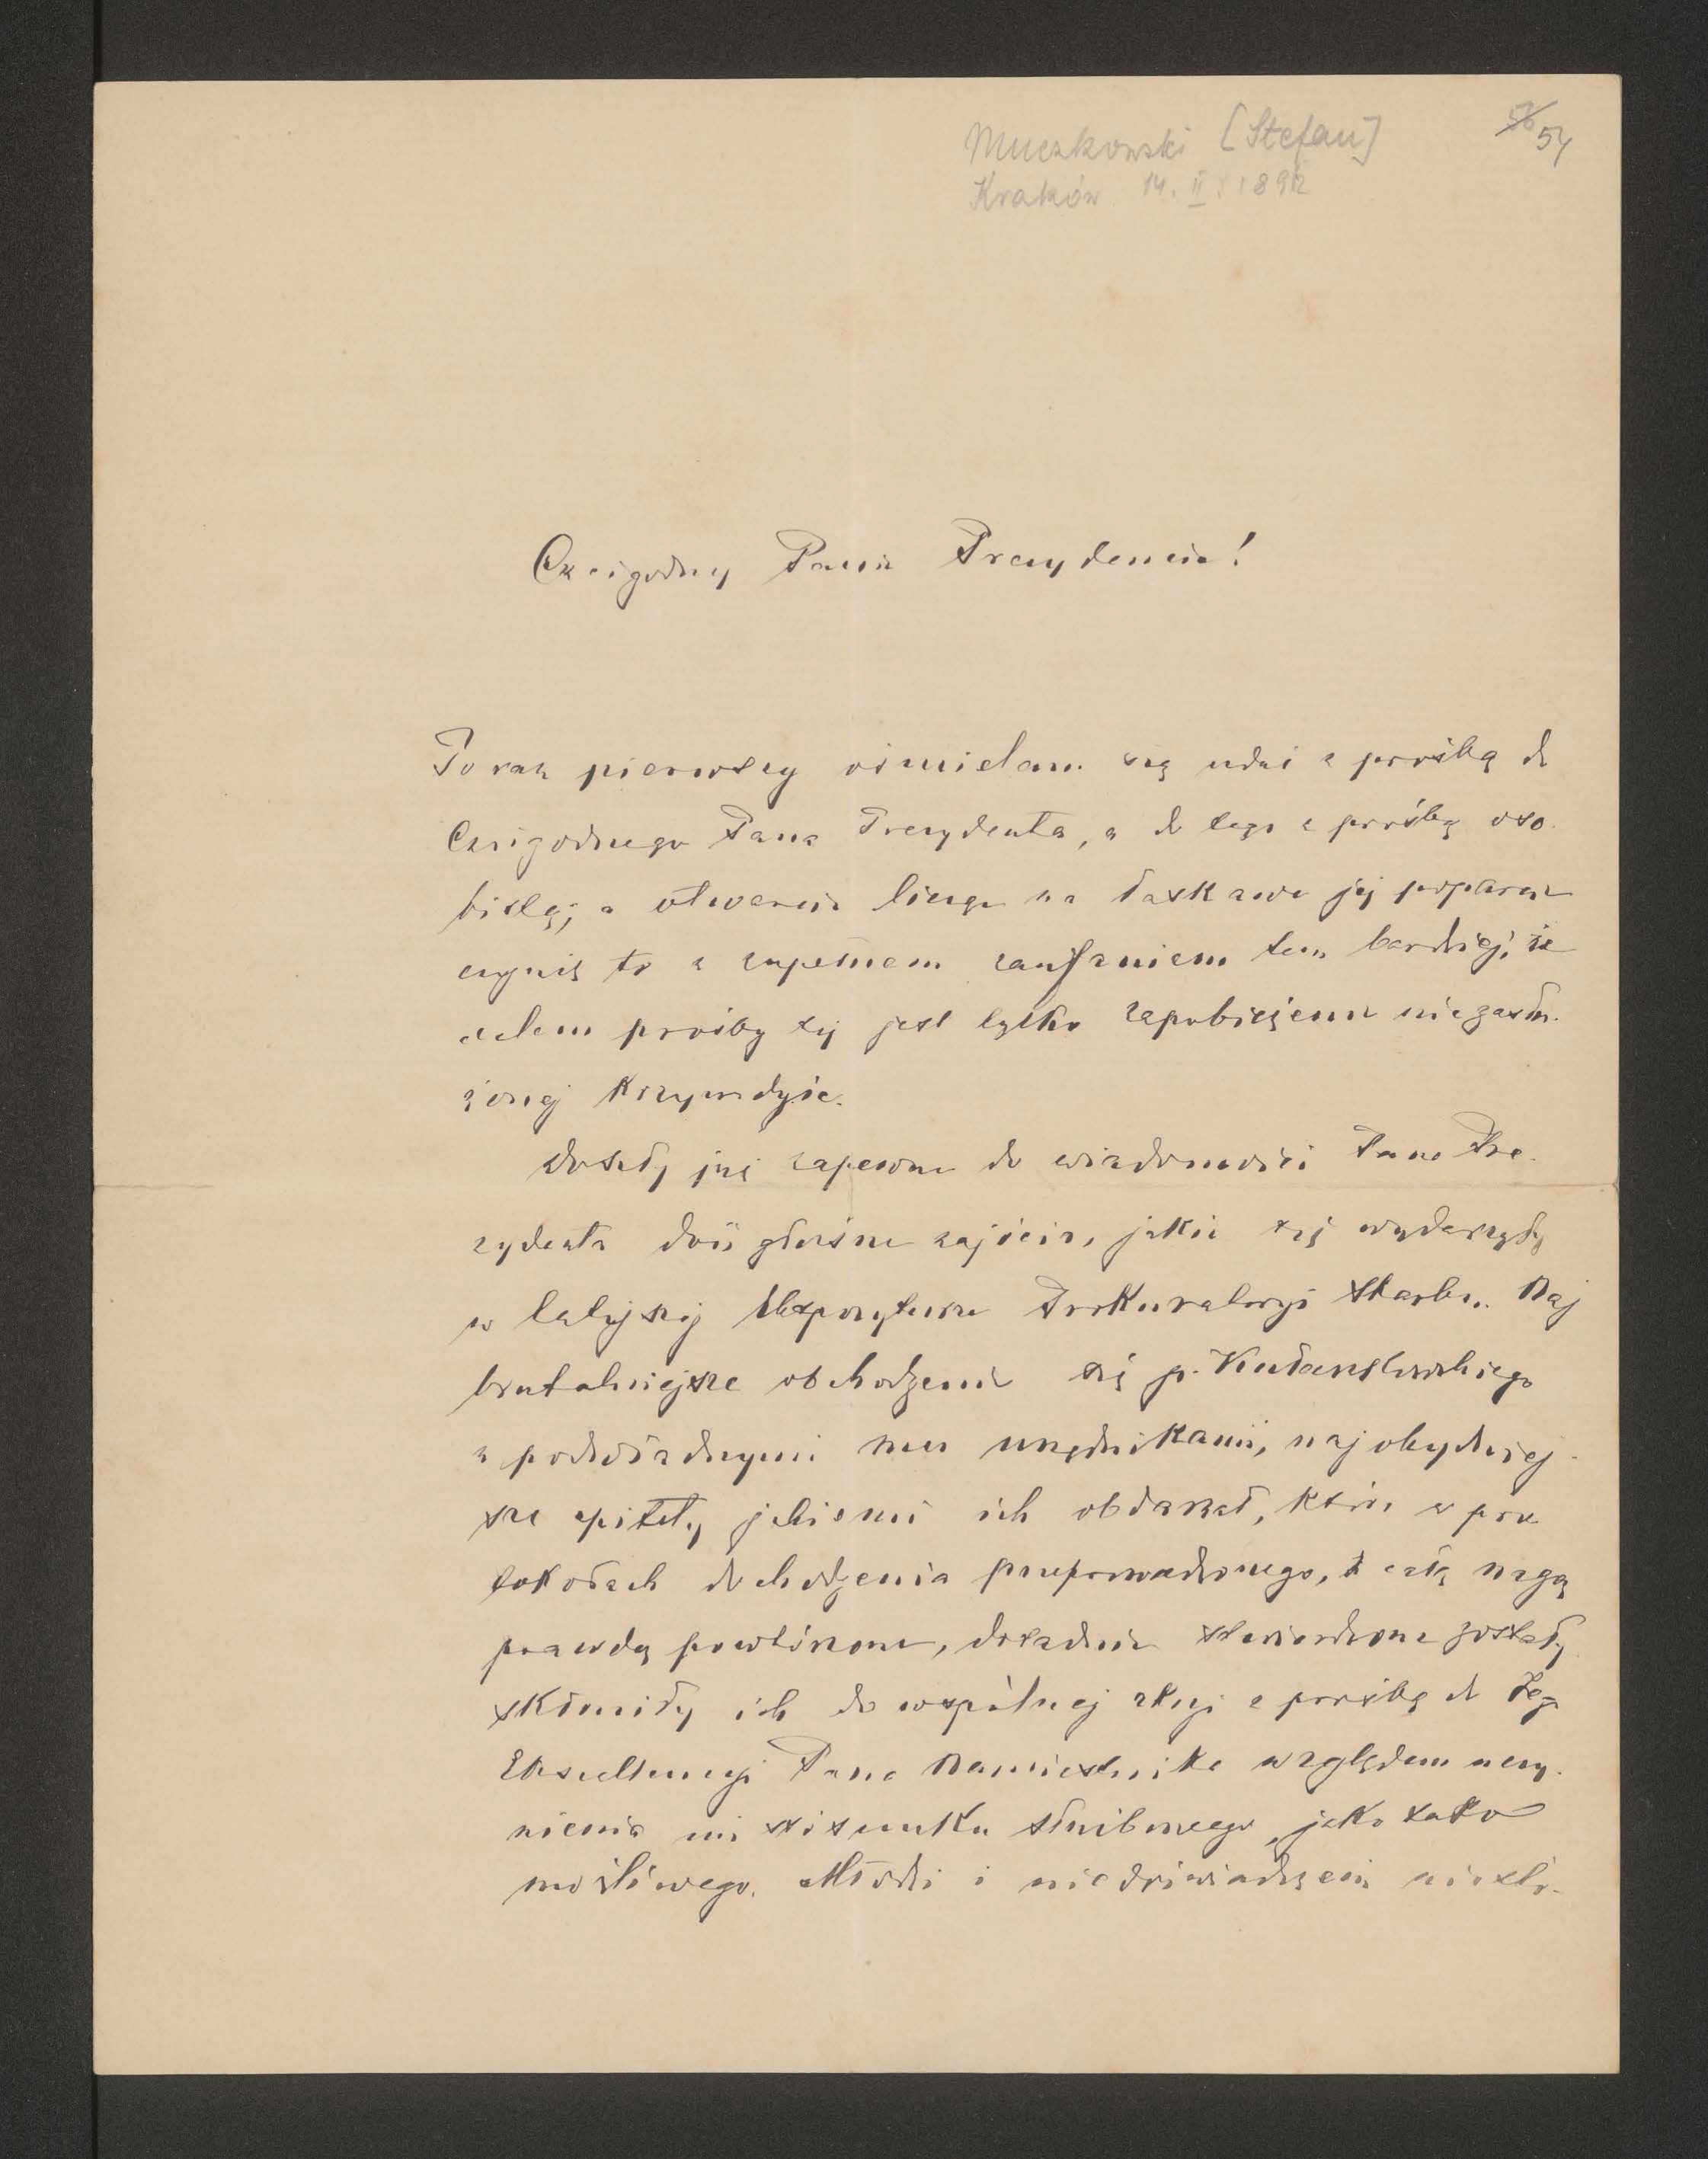 Muczkowski [Stefan]
56 54
Kraków 14. II. 1892
Czcigodny Panie Prezydencie!
Po raz pierwszy ośmielam się udać z prośbą do
Czcigodnego Pana Prezydenta, a do tego z prośbą oso-
bistą; a otwarcie licząc na łaskawe jej poparcie
czynię to z zupełnem zaufaniem tem bardziej, że
celem prośby tej jest tylko zapobieżenie niezasłu-
żonej krzywdzie.
Doszły już zapewne do wiadomości Pana Pre-
zydenta dość głośne zajścia, jakie się wydarzyły
w tutejszej Ekspozyturze Prokuratoryi Skarbu. Naj
brutalniejsze obchodzenie się p.
z podwładnymi mu urzędnikami, najohydniej-
sze epitety jakiemi ich obdarzał, które w pro
tokołach dochodzenia przeprowadzonego, z całą nagą
prawdą powtórzone, dokładnie stwierdzone zostały
skłoniły ich do wspólnej akcyi z prośbą do Jego
Ekscellencyi Pana Namiestnika względem uczy-
nienia im stosunku służbowego, jako tako
możliwego. Młodzi i niedoświadczeni